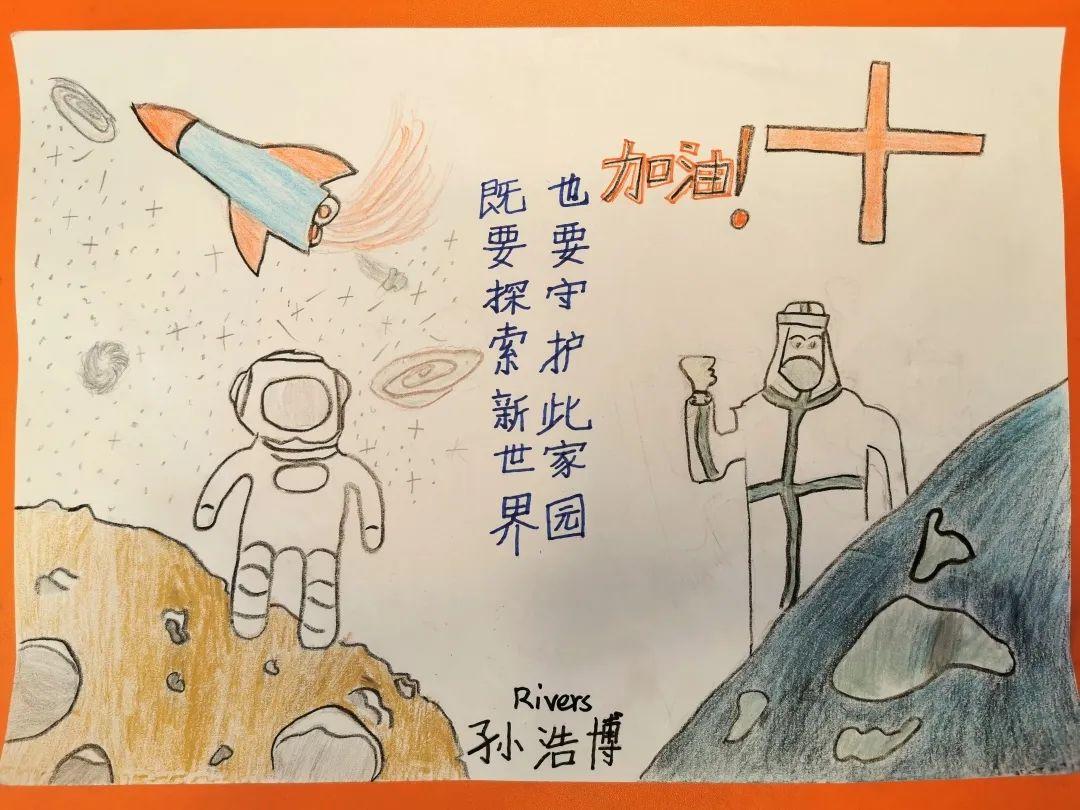 加油!
既要探索新世界
也要守护此家园
Rivers
孙浩博